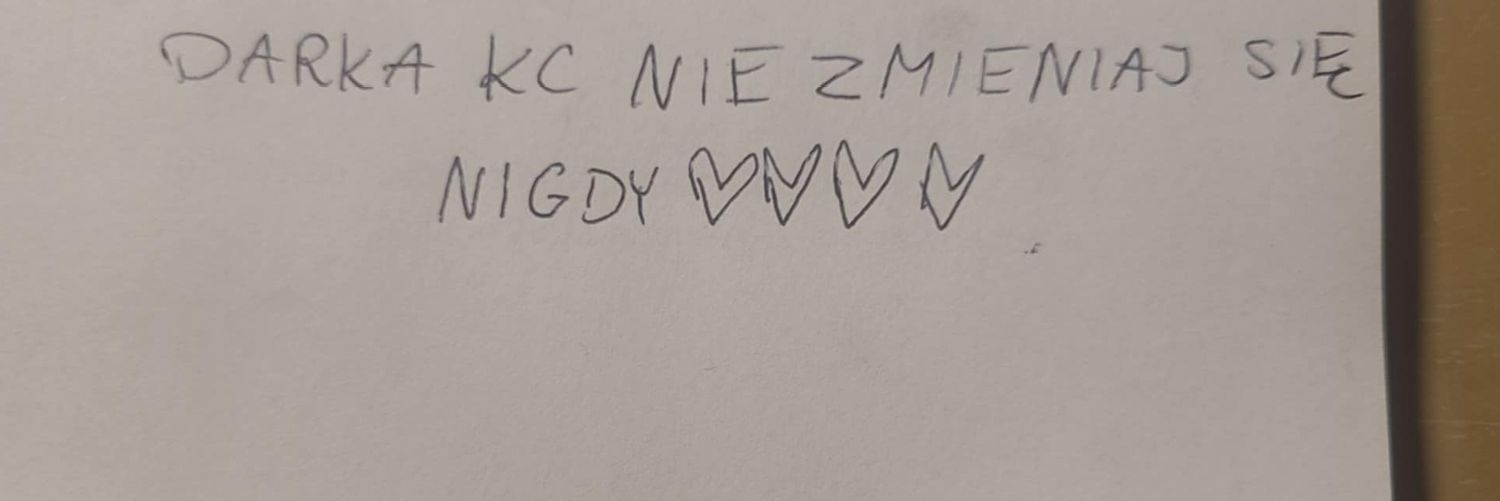 DARKA KC NIE ZMIENIAJ SIĘ
NIGDY ♡♡♡♡